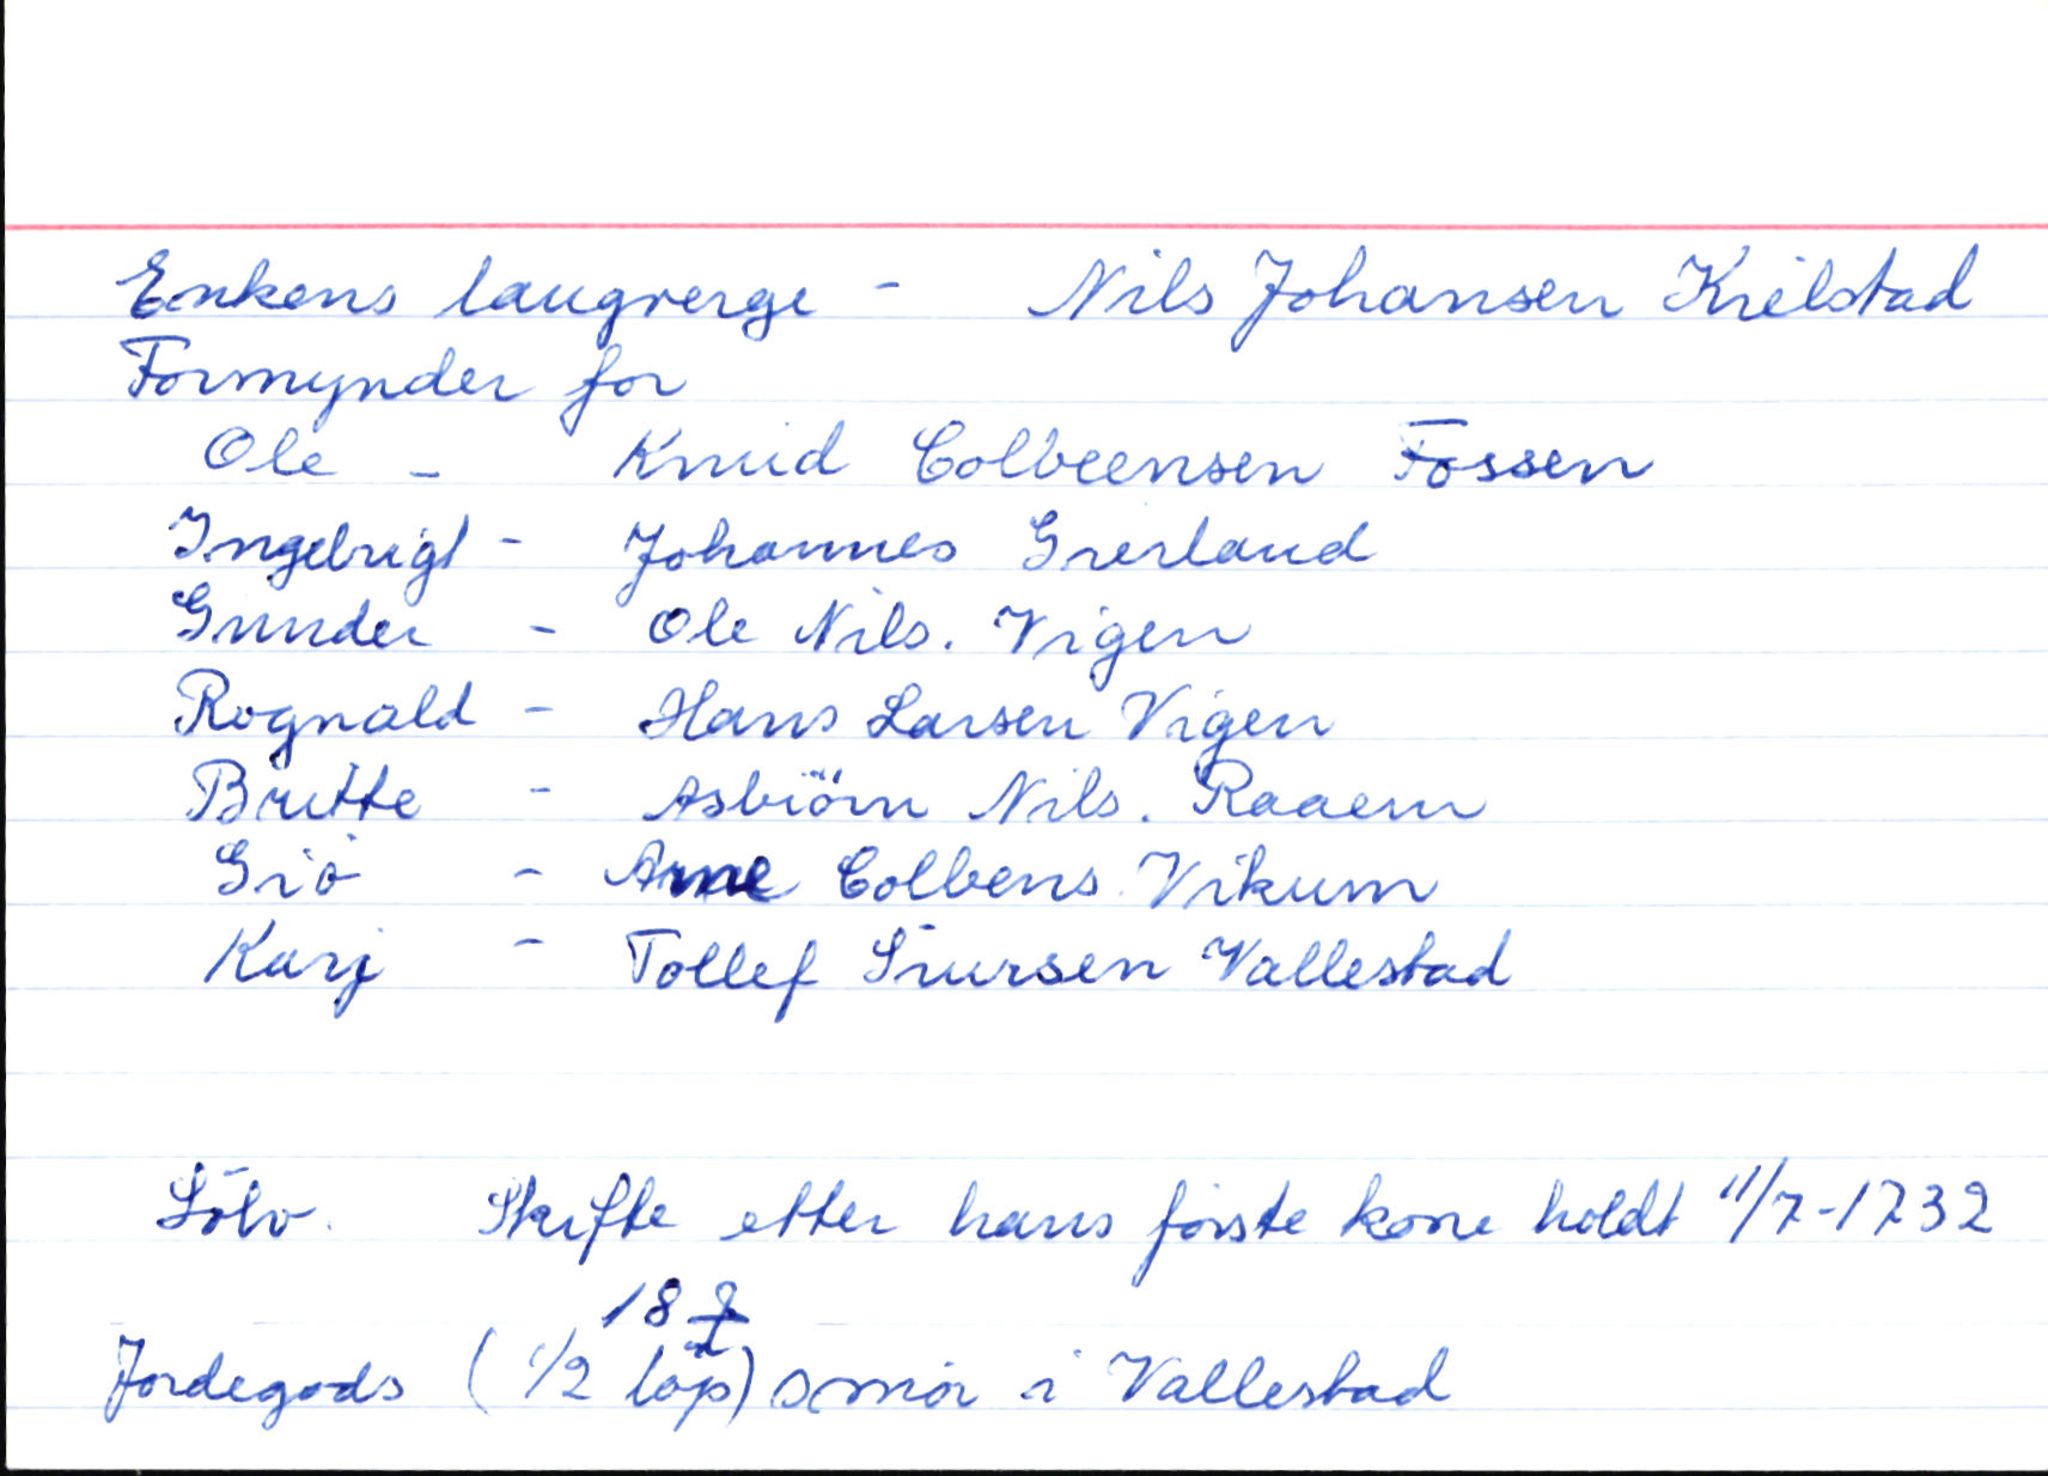 Enkens laugverge - Nils Johansen Kielstad
Formynder for
Ole - Knud Colbeensen Fossen
Ingebrigt - Johannes Gierland
Gunder - Ole Nils. Vigen
Rognald - Hans Larsen Vigen
Britte - Asbiörn Nils. Raaem
Giö - Arne Colbens. Vikum
Karj - Tollef Siursen Vallestad
Sölv. Skifte etter hans förste kone holdt 11/7-1732
18
Jordegods (1/2 löp) smör i Vallestad